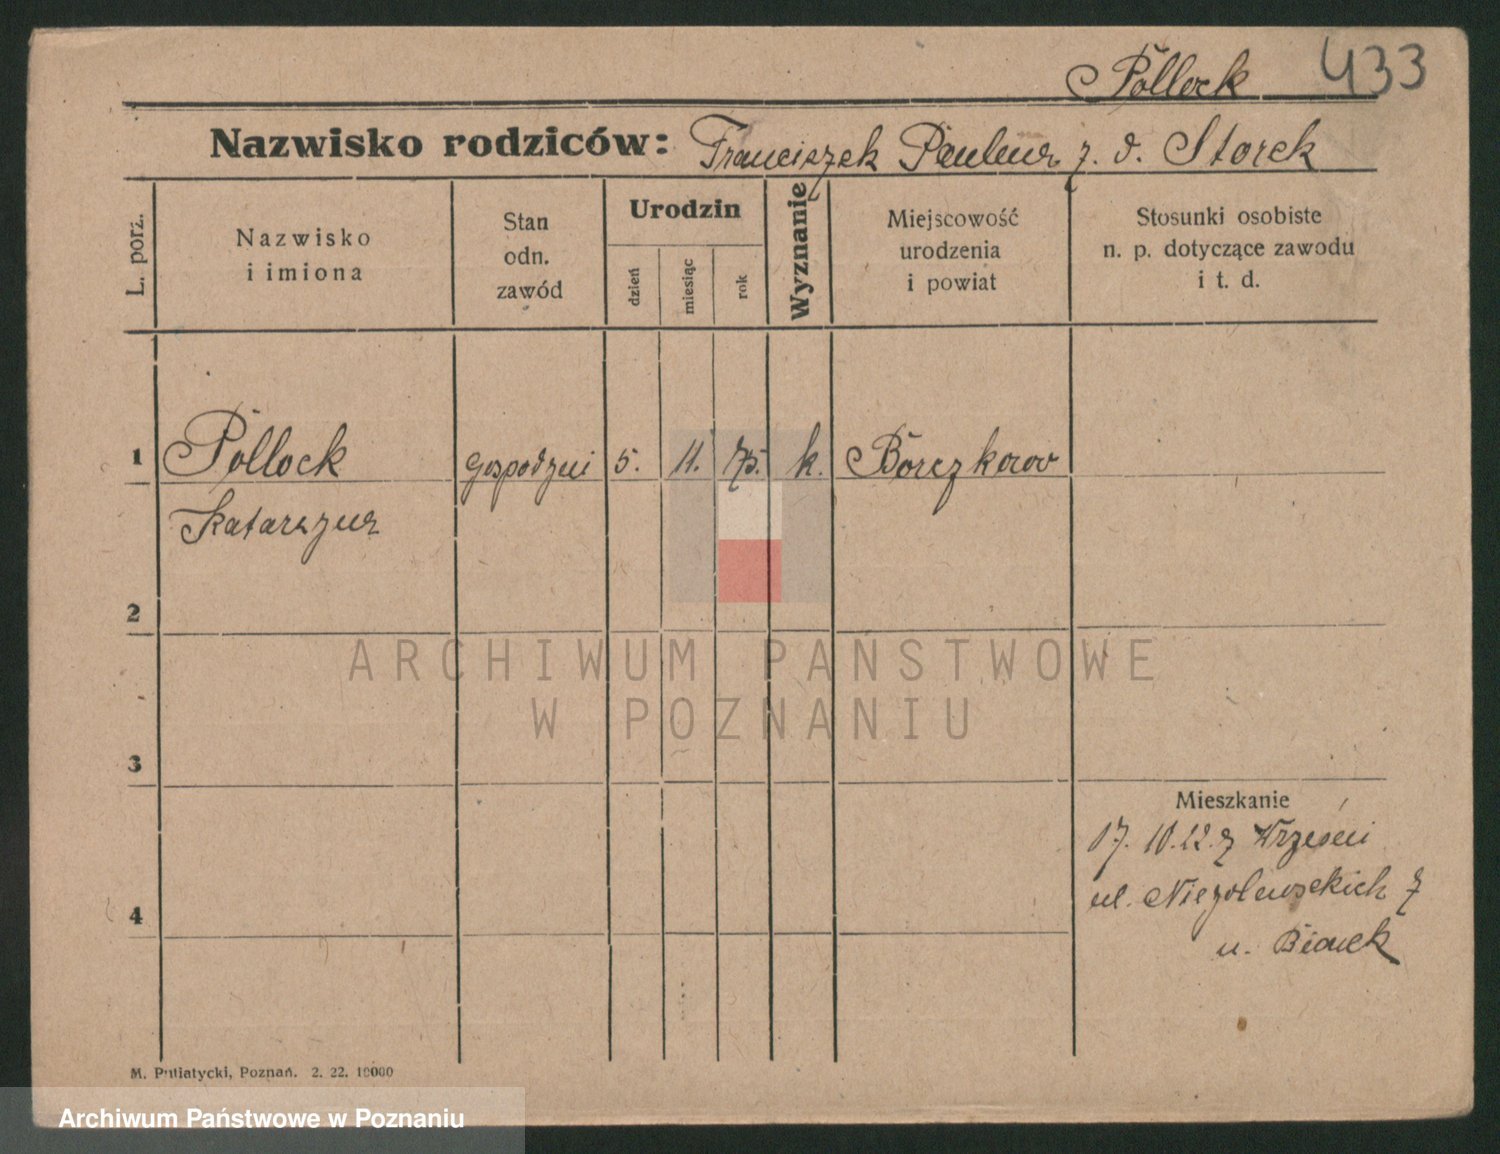 Pollock 433
Nazwisko rodziców: Franciszek Paulina z. d. Storek
L. porz.
Nazwisko
i imiona
Stan
odn.
zawód
Urodzin
dzień
miesiąc
rok
Wyznanie
Miejscowość
urodzenia
i powiat
Stosunki osobiste
n. p. dotyczące zawodu
i t. d.
1 Pollock gospodyni 5. 11. 75. k.
Katarzyna
2
ARCHIWUM PAŃSTWOWE
W POZNANIU
3
Mieszkanie
17. 10. 22. z Wrześni
ul. Niegolewskich 7
4
u.
M. Putiatycki, Poznań. 2. 22. 10000
Archiwum Państwowe w Poznaniu